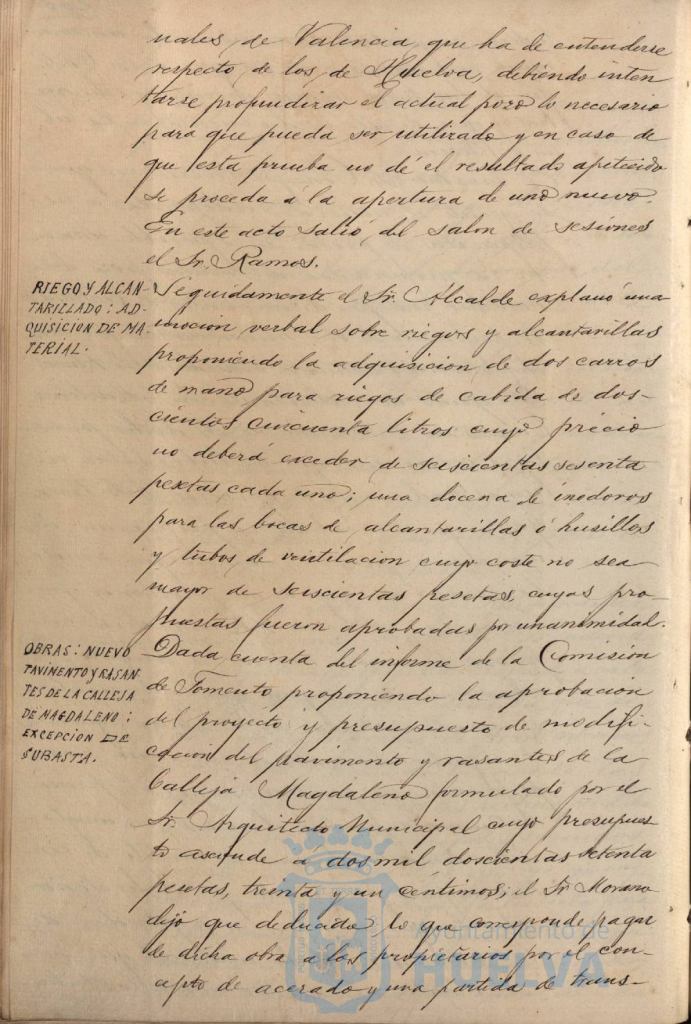 nales, de Valencia, que ha de entenderse
respecto de los de Huelva, debiendo inten
tarse profundizar el actual pozo lo necesario
para que pueda ser utilizado y en caso de
que esta prueba no dé el resultado apetecido
se proceda á la apertura de uno nuevo.
En este acto salió del salon de sesiones
el Sr. Ramos.
RIEGO Y ALCAN-
TARILLADO: AD-
QUISICION DE MA-
TERIAL.
Seguidamente el Sr. Alcalde explanó una
mocion verbal sobre riegos y alcantarillas
proponiendo la adquisicion de dos carros
de mano para riegos de cabida de dos-
cientos cincuenta litros cuyo precio
no deberá exceder de seiscientas sesenta
pesetas cada uno; una docena de inodoros
para las bocas de alcantarillas ó husillos
y tubos de ventilacion cuyo coste no sea
mayor de seiscientas pesetas, cuyas pro-
puestas fueron aprobadas por unanimidad.
OBRAS: NUEVO
PAVIMENTO Y RASAN-
TES DE LA CALLEJA
DE MAGDALENO:
EXCEPCION DE
SUBASTA.
Dada cuenta del informe de la Comision
de Fomento proponiendo la aprobacion
del proyecto y presupuesto de modifi-
cacion del pavimento y rasantes de la
Calleja Magdaleno formulado por el
Sr. Arquitecto Municipal cuyo presupues
to asciende á dos mil doscientas setenta
pesetas, treinta y un céntimos; el Sr. Morano
dijo que deducida lo que corresponde pagar
de dicha obra a los propietarios por el con-
cepto de acerado y una partida de trans-
Ayuntamiento de
HUELVA